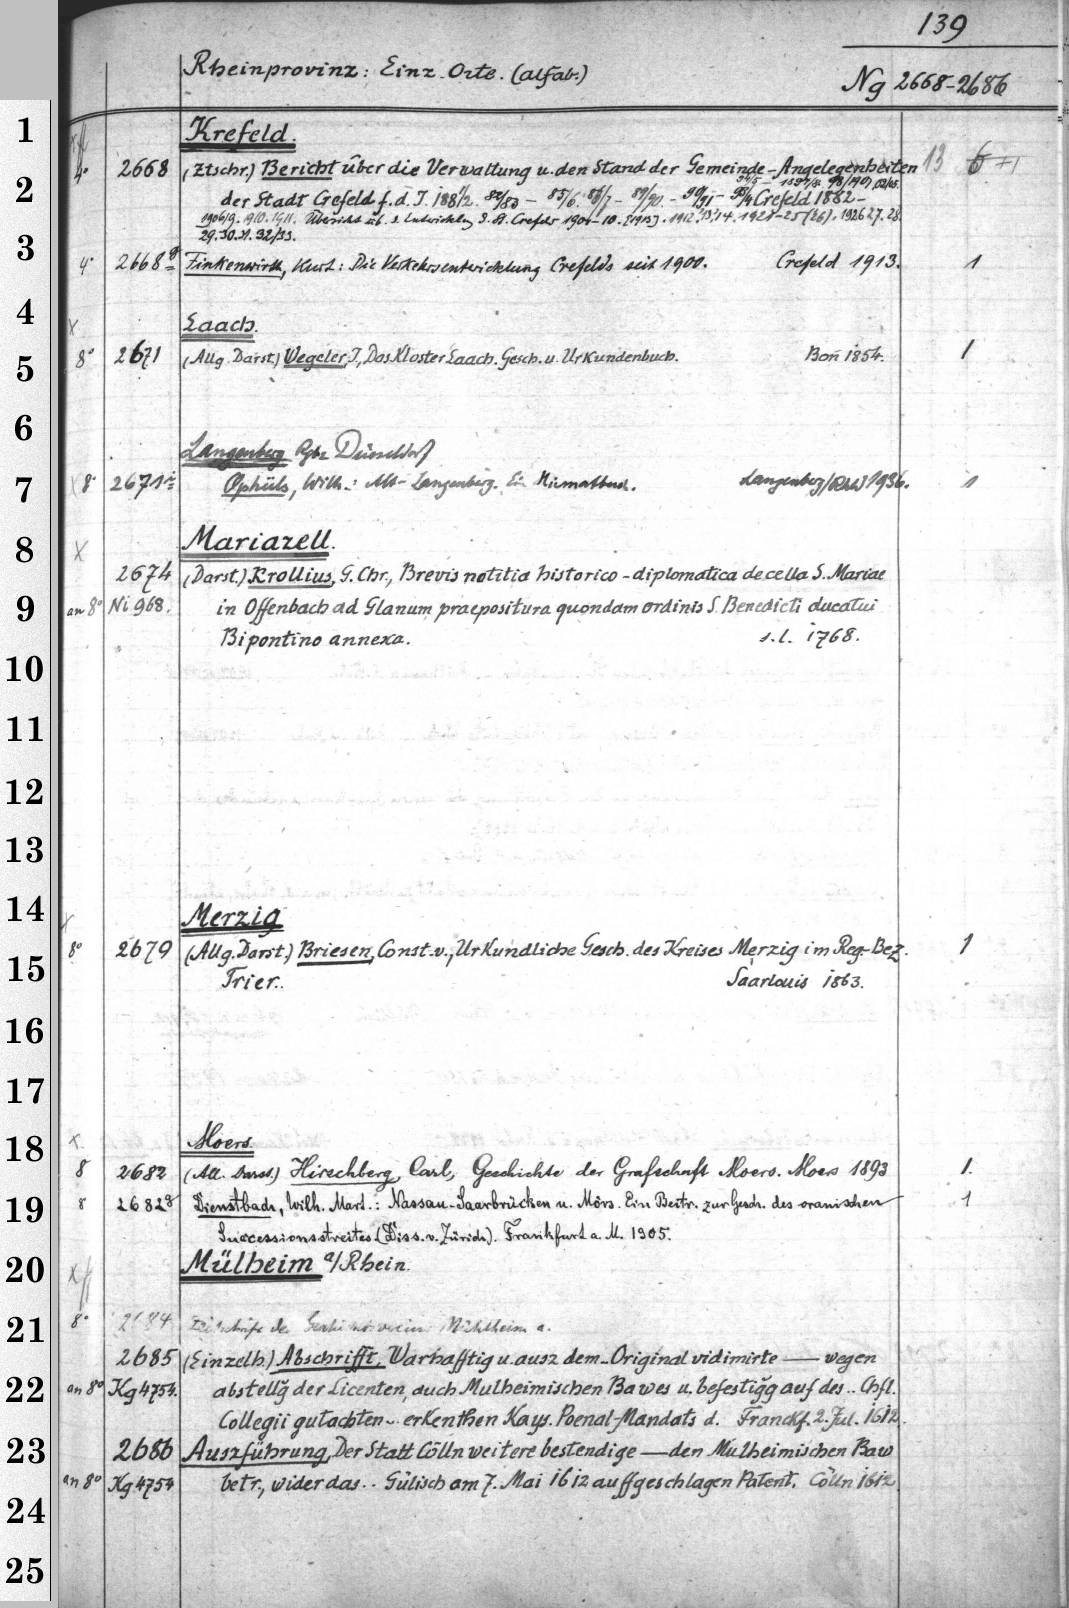 139
Rheinprovinz: Einz. Orte. (alfab.)
Ng 2668-2686
1
Krefeld.
4° 2668 (Ztschr.) Bericht über die Verwaltung u. den Stand der Gemeinde-Angelegenheiten 13 6 +1
2
der Stadt Crefeld f. d. J. 1881/2. 82/83 - 85/6. 86/7 - 89/90. - 90/91 - 93/4 Crefeld 1882-
1908/9. 1910. 1911. Übersicht üb. d. Entwicklg d. St. Crefeld 1901-10. (1913). 1912. 13/14. 1921-25 (26). 1926 27. 28.
29. 30. 31. 32/33.
3
4° 2668g Finkenwirth, Kurt: Die Verkehrsentwicklung Crefelds seit 1900. Crefeld 1913. 1
4
x Laach.
5
8° 2671 (Allg. Darst.) Wegeler, J., Das Kloster Laach. Gesch. u. Urkundenbuch. Bon̄ 1854. 1
6
Langenberg Rgbz Düsseldorf
7
x 8° 2671i Ophüls, Wilh.: Alt-Langenberg. Ein Heimatbuch. Langenberg/Rhld 1936. 1
8
x Mariazell.
2674 (Darst.) Krollius, G. Chr., Brevis notitia historico-diplomatica de cella S. Mariae
9
an 8° Ni 968. in Offenbach ad Glanum praepositura quondam ordinis S. Benedicti ducatui
Bipontino annexa. s.l. 1768.
10
11
12
13
14
x Merzig
8° 2679 (Allg. Darst.) Briesen, Const. v., Urkundliche Gesch. des Kreises Merzig im Reg.-Bez. 1
15
Trier.. Saarlouis 1863.
16
17
18
x. Moers.
8 2682 (All. Darst.) Hirschberg, Carl, Geschichte der Grafschaft Moers. Moers 1893 1.
19
8 2682g Dienstbach, Wilh. Mart.: Nassau-Saarbrücken u. Mörs. Ein Beitr. zur Gesch. des oranischen 1
Successionsstreites (Diss. v. Zürich). Frankfurt a. M. 1905.
20
Mülheim a/Rhein.
21
8° 2684 Zeitschrift des Mühlheim a.
2685 (Einzelh.) Abschrifft, Warhafftig u. ausz dem Original vidimirte — wegen
22
an 8° Kg 4754. abstellg̃ der Licenten, auch Mulheimischen Bawes u. befestigg̃ auf des.. Chfl.
Collegii gutachten.. erkenthen Kays. Poenal-Mandats d. Franckf. 2. Jul. 1612.
23
2686 Auszführung, Der Statt Cölln weitere bestendige — den Mulheimischen Baw
an 8° Kg 4754 betr., wider das.. Gülisch am 7. Mai 1612 auffgeschlagen Patent. Cölln 1612
24
25